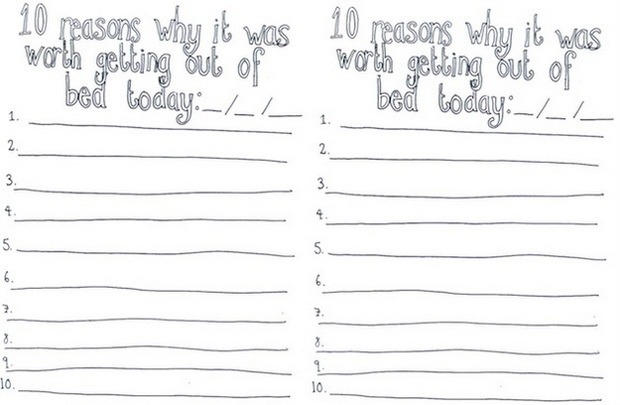 10 reasons why it was
worth getting out of
bed today:__/__/___
1.
2.
3.
4.
5.
6.
7.
8.
9.
10.
10 reasons why it was
worth getting out of
bed today:__/__/___
1.
2.
3.
4.
5.
6.
7.
8.
9.
10.